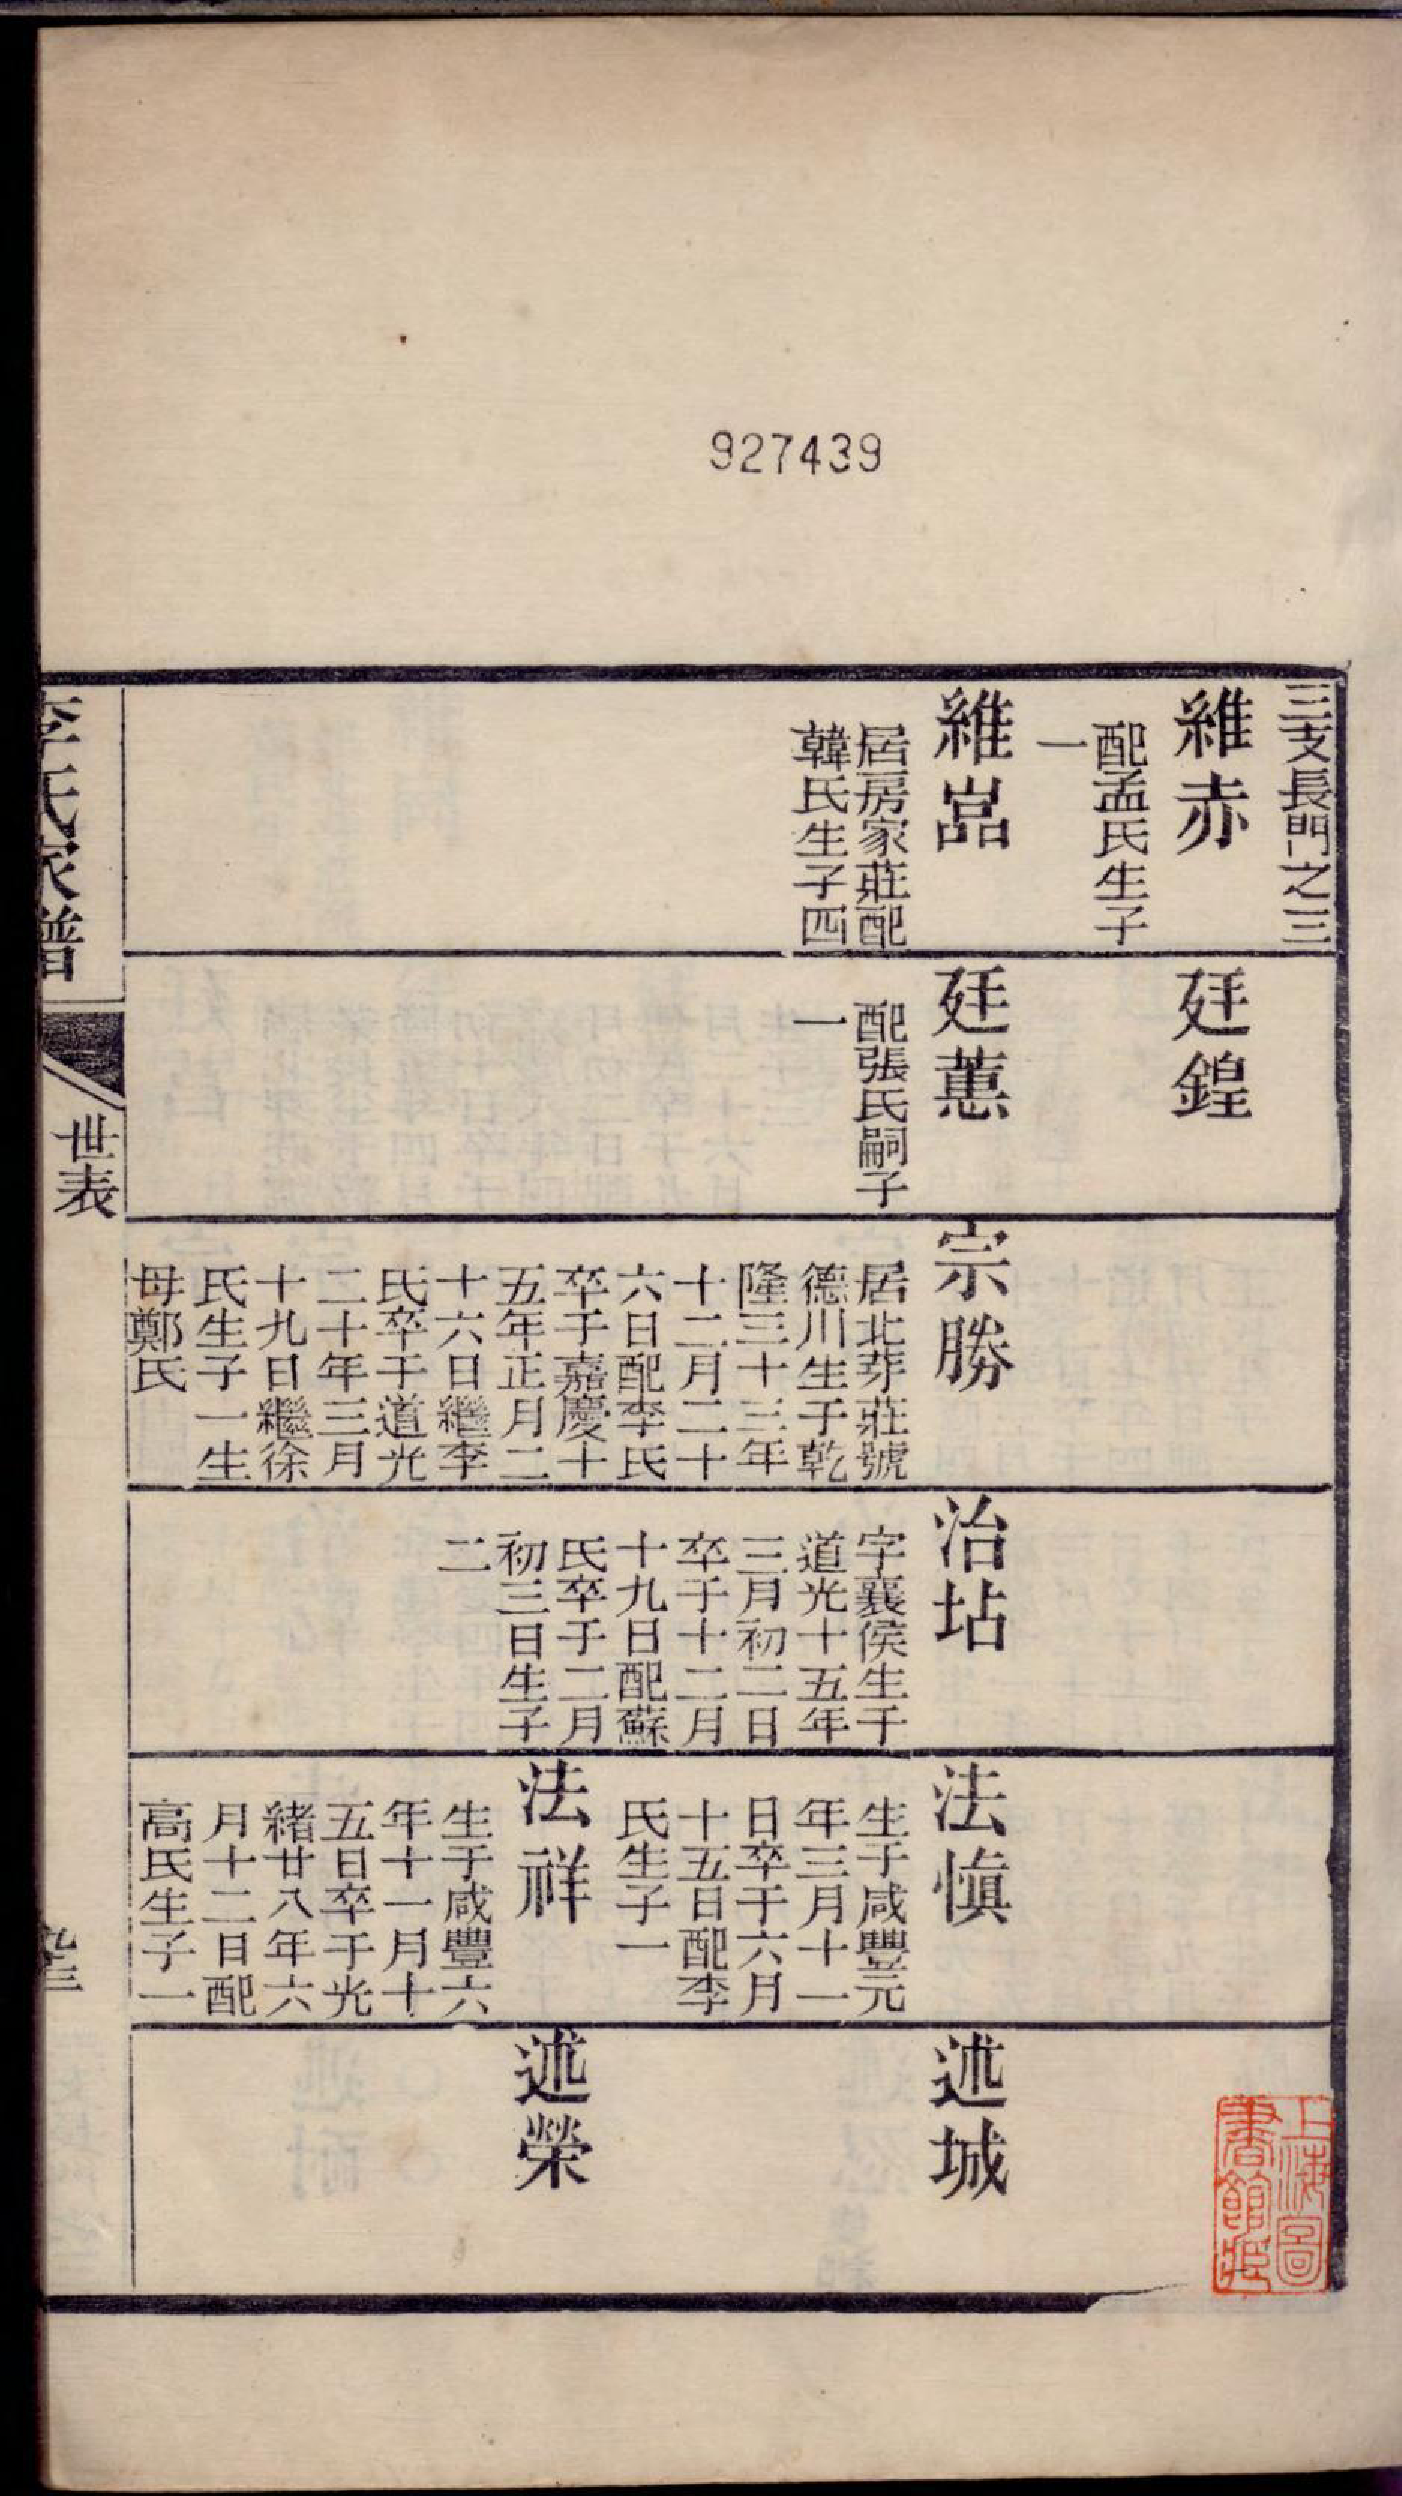 927439
三支長門之三
維赤
配孟氏生子
一
維嵓
居房家莊配
韓氏生子四
廷鍠
廷蕙
配張氏嗣子
一
宗勝
居北茡莊號
德川生于乾
隆三十三年
十二月二十
六日配李氏
卒于嘉慶十
五年正月二
十六日繼李
氏卒于道光
二十年三月
十九日繼徐
氏生子一生
母鄭氏
治坫
字襄侯生于
道光十五年
三月初二日
卒于十二月
十九日配蘇
氏卒于二月
初三日生子
二
法愼
生于咸豐元
年三月十一
日卒于六月
十五日配李
氏生子一
法祥
生于咸豐六
年十一月十
五日卒于光
緒廿八年六
月十二日配
高氏生子一
述城
述榮
李氏家譜
世表
上海圖
書館藏